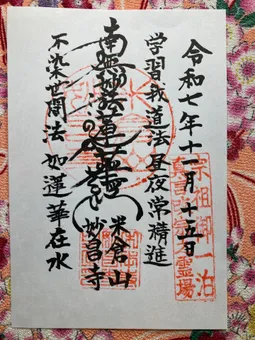 令和七年十一月十五日
学習我道法 昼夜常精進
南無妙法蓮華経
米倉山
妙昌寺
不染世間法 如蓮華在水
宗祖御一泊
霊場